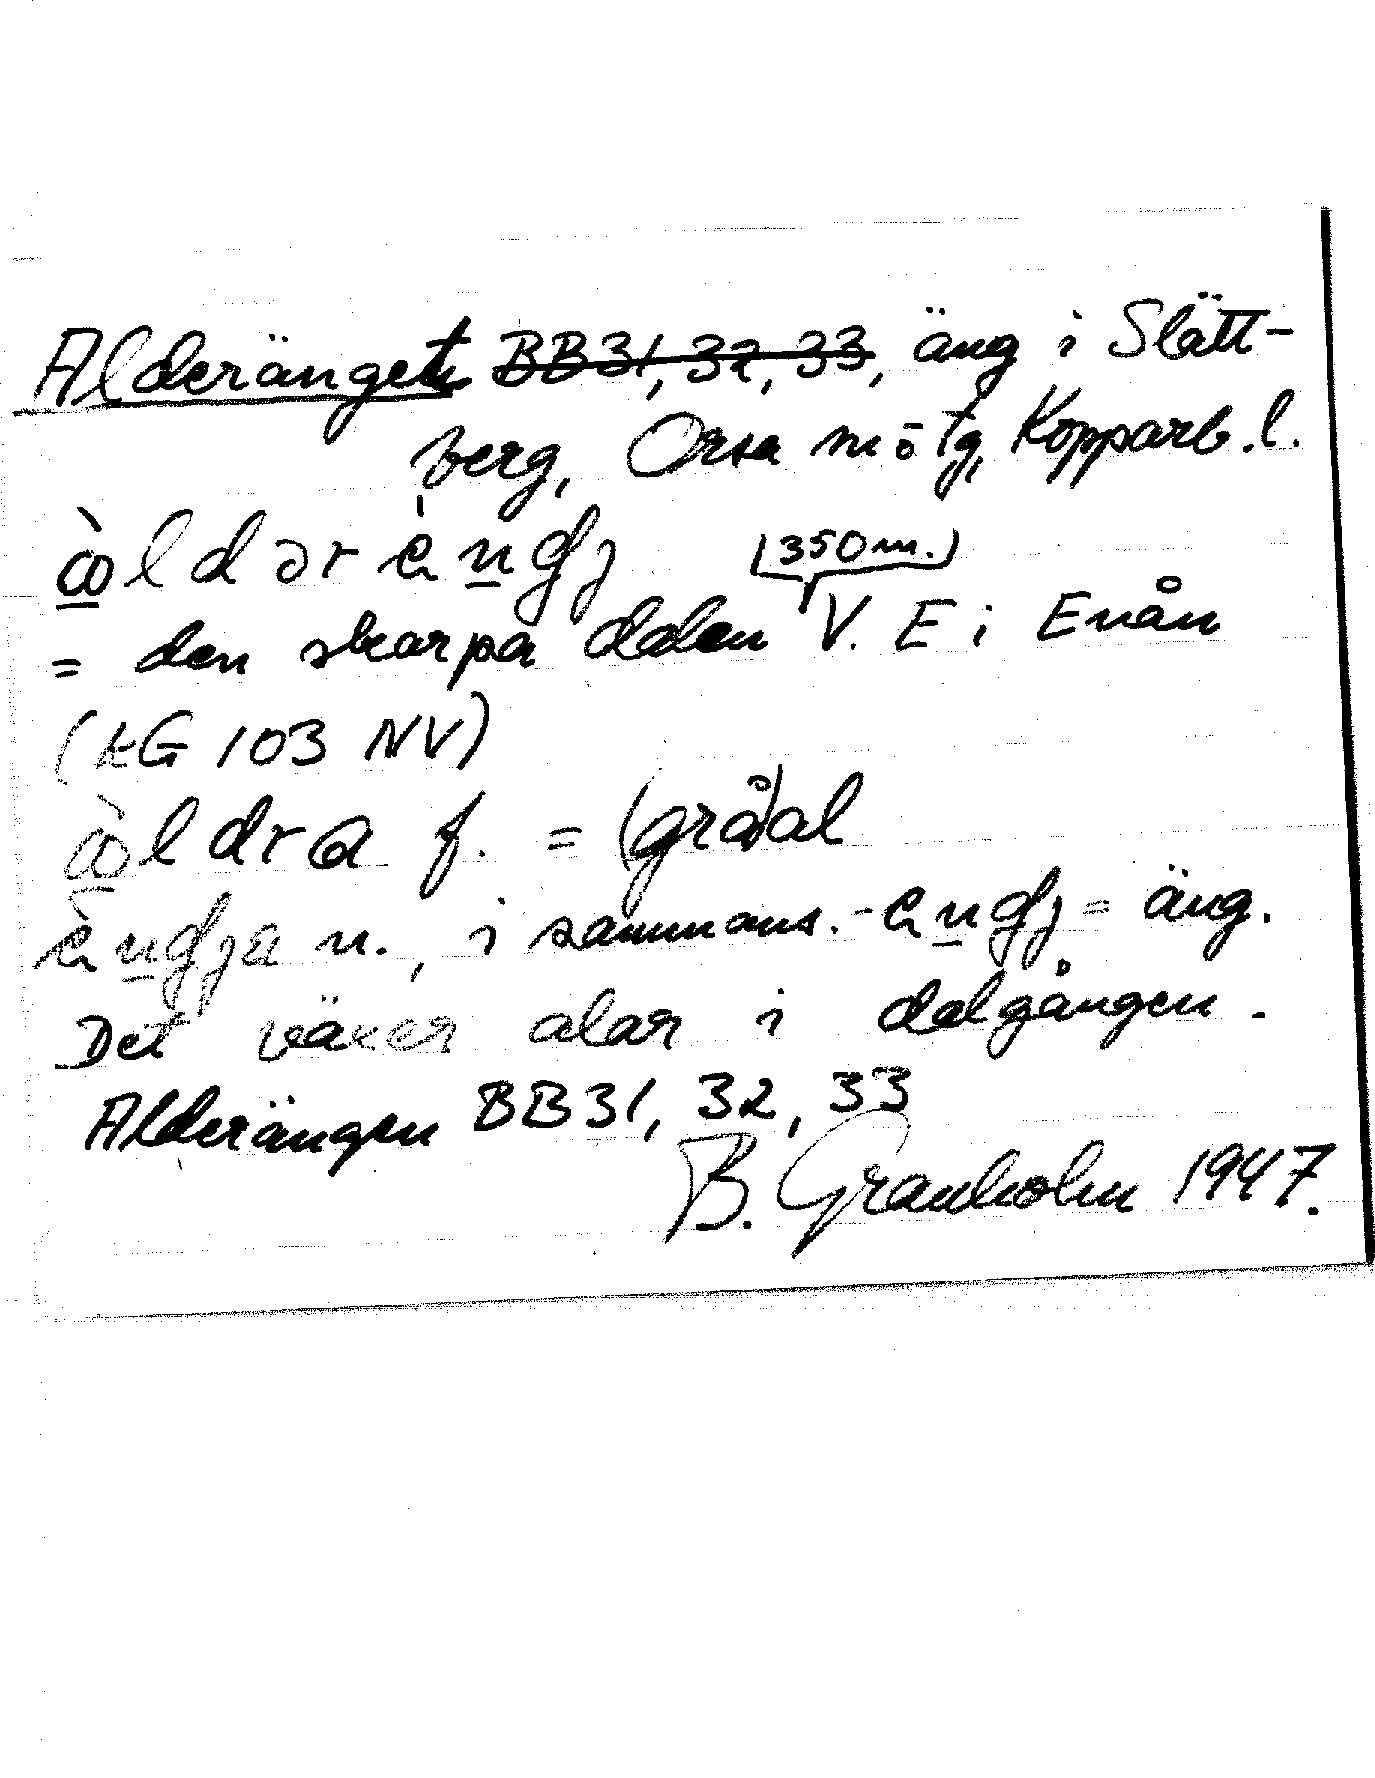 Alderänget B̶B̶3̶1̶,̶ ̶3̶2̶,̶ ̶3̶3̶, äng i Slätt-
berg, Orsa nō tg, Kopparb. l.
ὼ̲ldərèn̲ɠȷ
(350 m.)
= den skarpa dalen V. E i Enån
(kG 103 NV)
ὼ̲ldra f. = (grå)al
èn̲ɠȷa n., i sammans. -en̲ɠȷ = äng.
Det växer alar i dalgången.
Alderängen BB31, 32, 33
B. Granholm 1947.